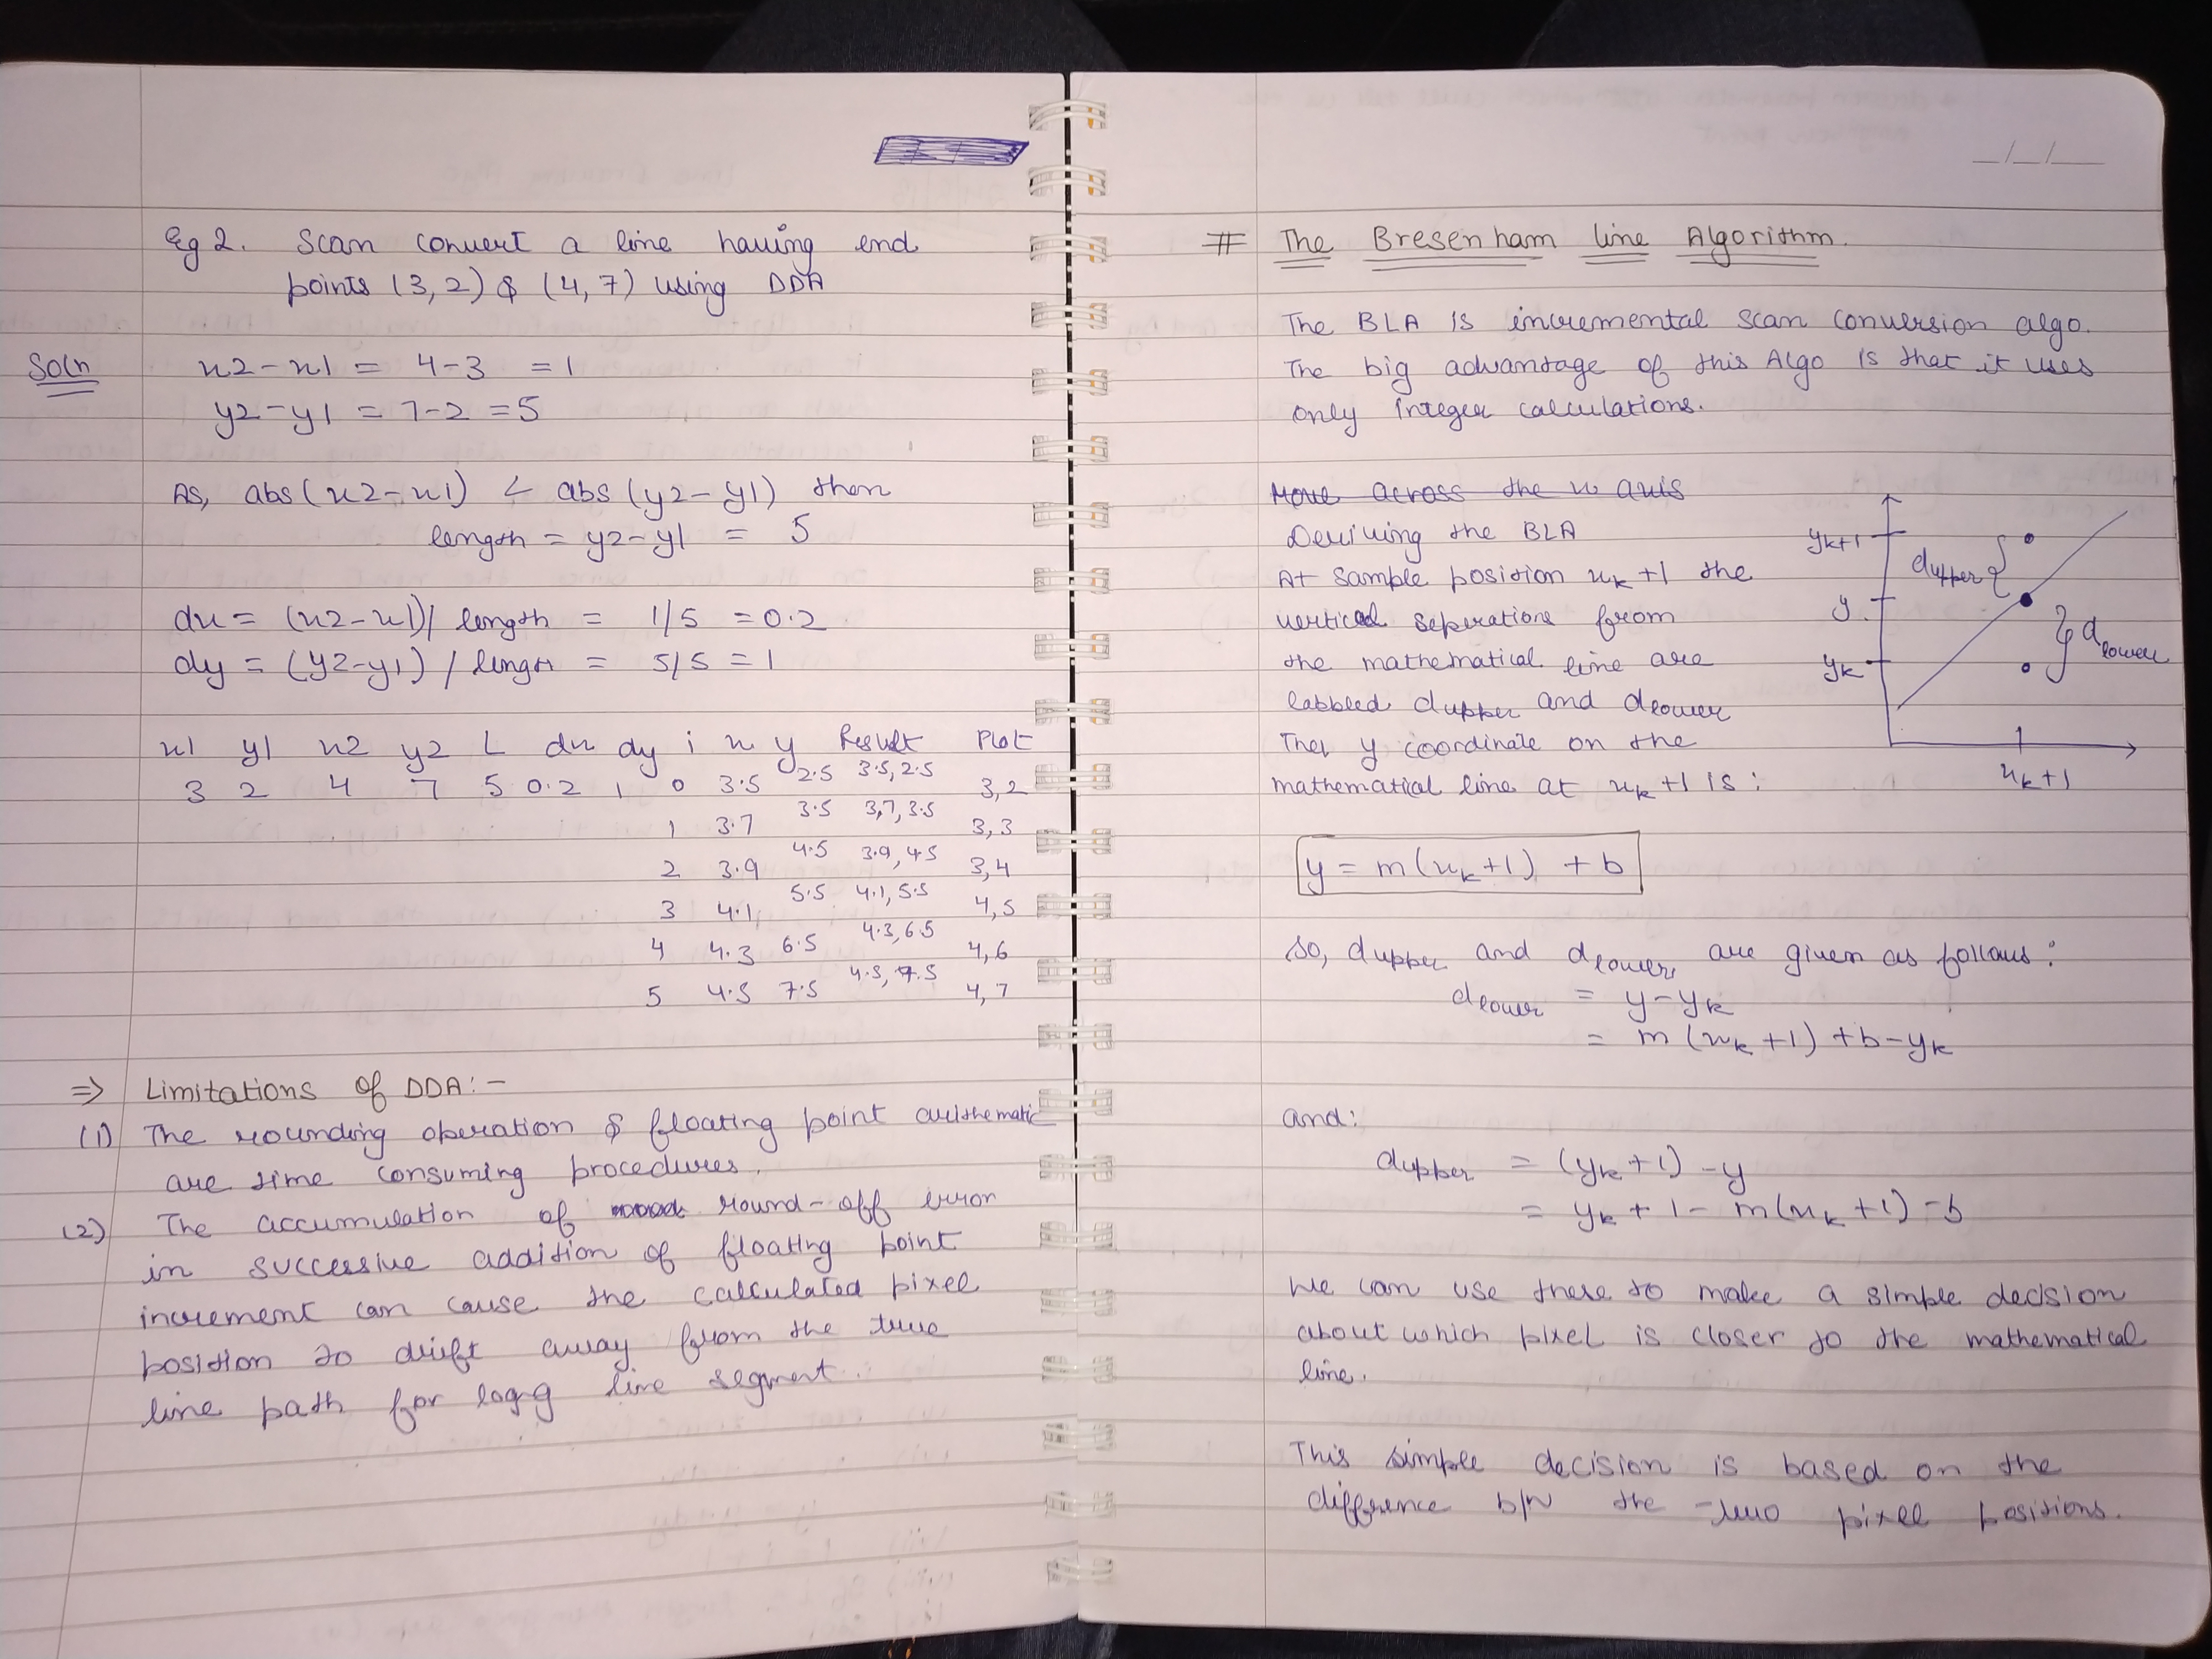 Eg 2. Scan convert a line having end
points (3, 2) & (4, 7) using DDA
Soln
x2 - x1 = 4 - 3 = 1
y2 - y1 = 7 - 2 = 5
As, abs(x2 - x1) < abs (y2 - y1) then
length = y2 - y1 = 5
dx = (x2 - x1)/ length = 1/5 = 0.2
dy = (y2 - y1) / length = 5/5 = 1
x1 y1 x2 y2 L dx dy i x y Result Plot
3 2 4 7 5 0.2 1 0 3.5 2.5 3.5, 2.5 3,2
1 3.7 3.5 3,7, 3.5 3,3
2 3.9 4.5 3.9, 4.5 3,4
3 4.1 5.5 4.1, 5.5 4,5
4 4.3 6.5 4.3, 6.5 4,6
5 4.5 7.5 4.5, 7.5 4,7
=> Limitations of DDA : -
(1) The rounding operation & floating point arithematic
are time consuming procedures.
(2) The accumulation of round - off error
in successive addition of floating point
increment can cause the calculated pixel
position to drift away from the true
line path for long line segment.
_/_/__
# The Bresenham line Algorithm.
The BLA is incremental scan conversion algo.
The big advantage of this Algo is that it uses
only integer calculations.
Move across the x axis
Deriving the BLA
At sample position xk +1 the
vertical seperations from
the mathematical line are
labbled dupper and dlower
The y coordinate on the
mathematical line at xk +1 is :
yk+1
y
yk
dupper
dlower
xk+1
y = m(xk+1) + b
So, dupper and dlower are given as follows :
dlower = y - yk
= m (xk +1) + b - yk
and :
dupper = (yk + 1) - y
= yk + 1 - m(xk +1) - b
We can use these to make a simple decision
about which pixel is closer to the mathematical
line.
This simple decision is based on the
difference b/w the two pixel positions.